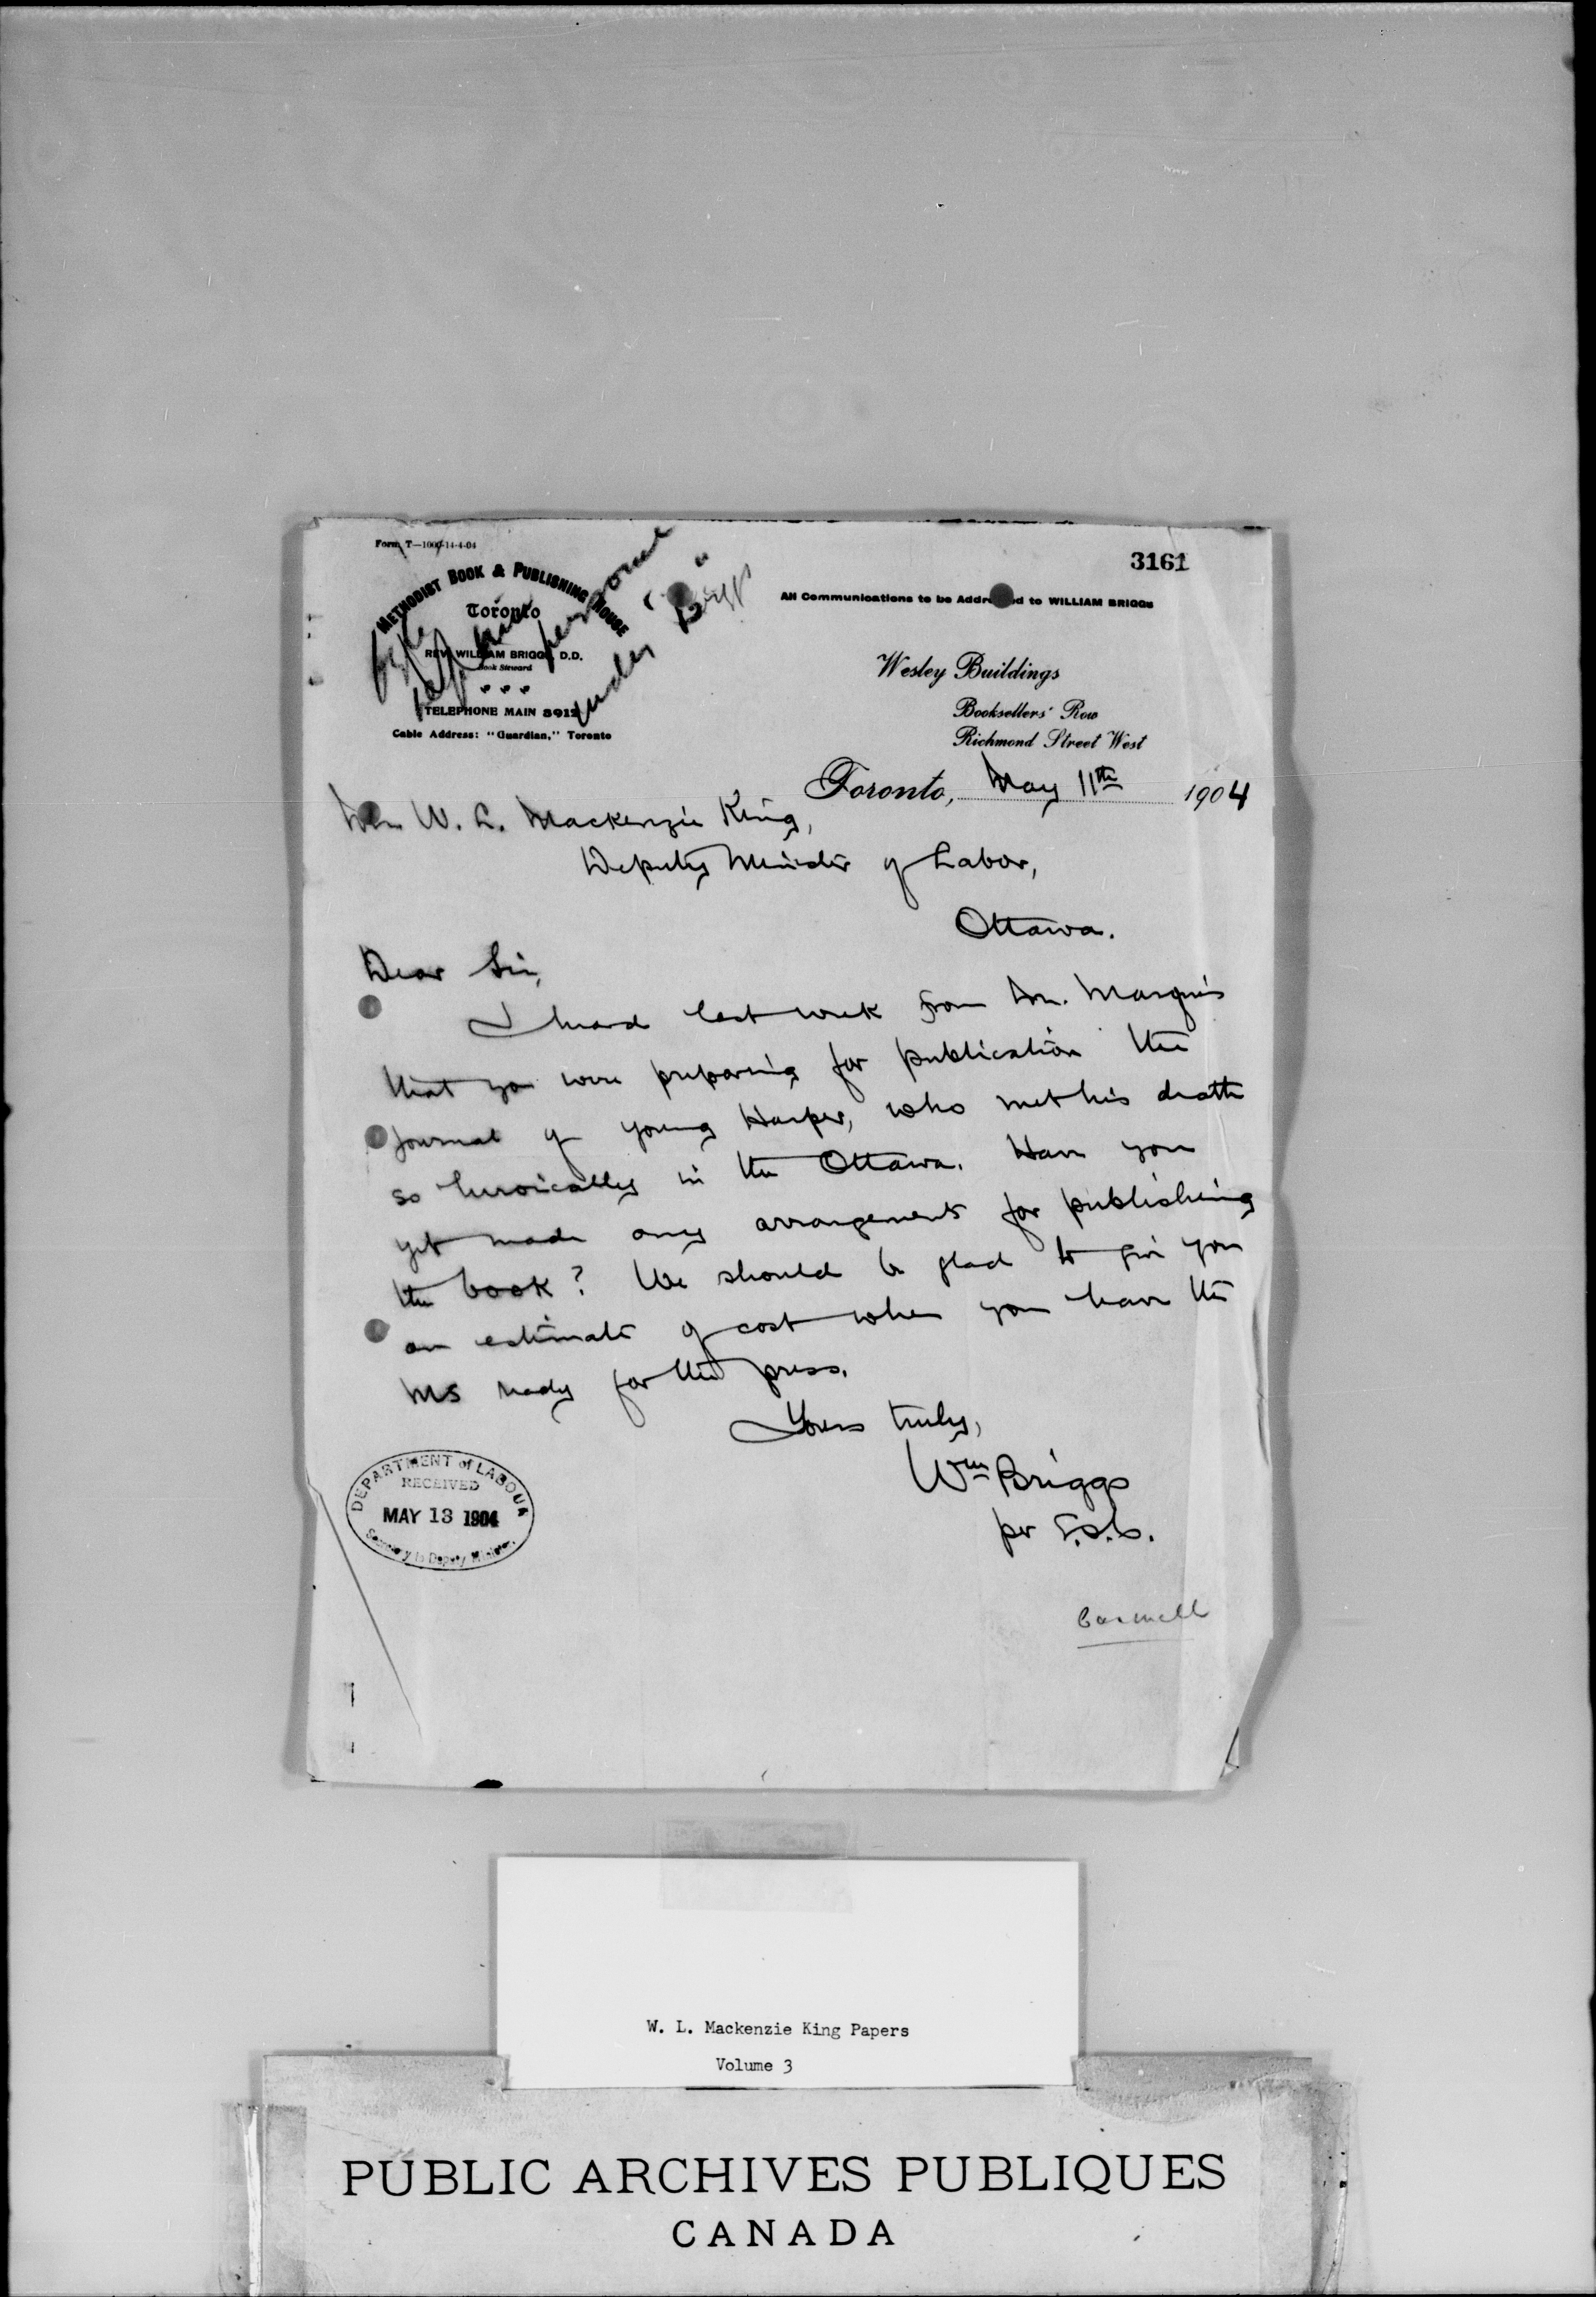 Form T—1000-14-4-04
3161
METHODIST BOOK & PUBLISHING HOUSE
Toronto
REV. WILLIAM BRIGGS, D.D.
Book Steward
TELEPHONE MAIN
Cable Address: "Guardian," Toronto
personal
under "B"
Briggs
All Communications to be Addressed to WILLIAM BRIGGS
Wesley Buildings
Booksellers' Row
Richmond Street West
Toronto, May 11th 1904
Mr W. L. Mackenzie King,
Deputy Minister of Labor,
Ottawa.
Dear Sir,
I heard last week from Mr. Marquis
that you were preparing for publication the
journal of young Harper, who met his death
so heroically in the Ottawa. Have you
yet made any arrangements for publishing
the book? We should be glad to give you
an estimate of cost when you have the
MS ready for the press.
Yours truly,
Wm Briggs
per
DEPARTMENT of LABOUR
RECEIVED
MAY 13 1904
Secretary to Deputy Minister.
W. L. Mackenzie King Papers
Volume 3
PUBLIC ARCHIVES PUBLIQUES
CANADA